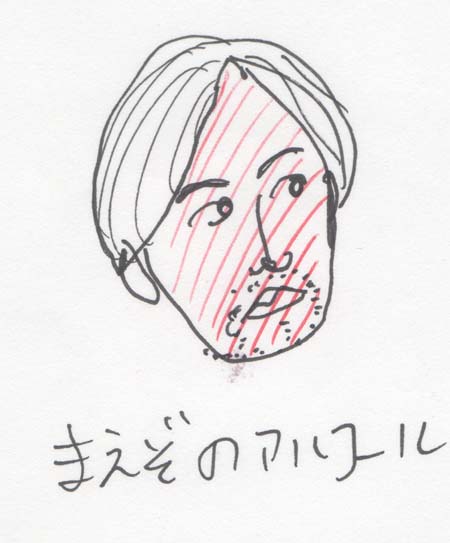 まえぞのアルコール